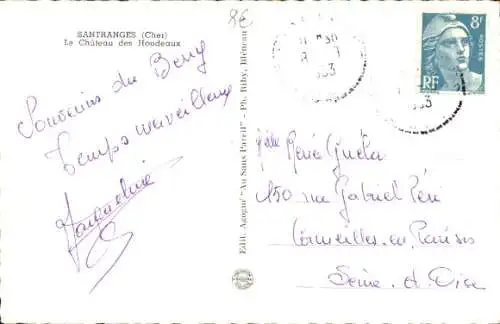 SANTRANGES (Cher)
Le Château des Houdeaux
8€
Souvenirs du Berry
Temps merveilleux
Edit. Agogué "Au Sans Pareil" - Ph. Riby, Bléneau
8F
POSTES
RF
Melle René Gueta
150 rue Gabriel Péri
Cormeilles en Parisis
Seine et Oise